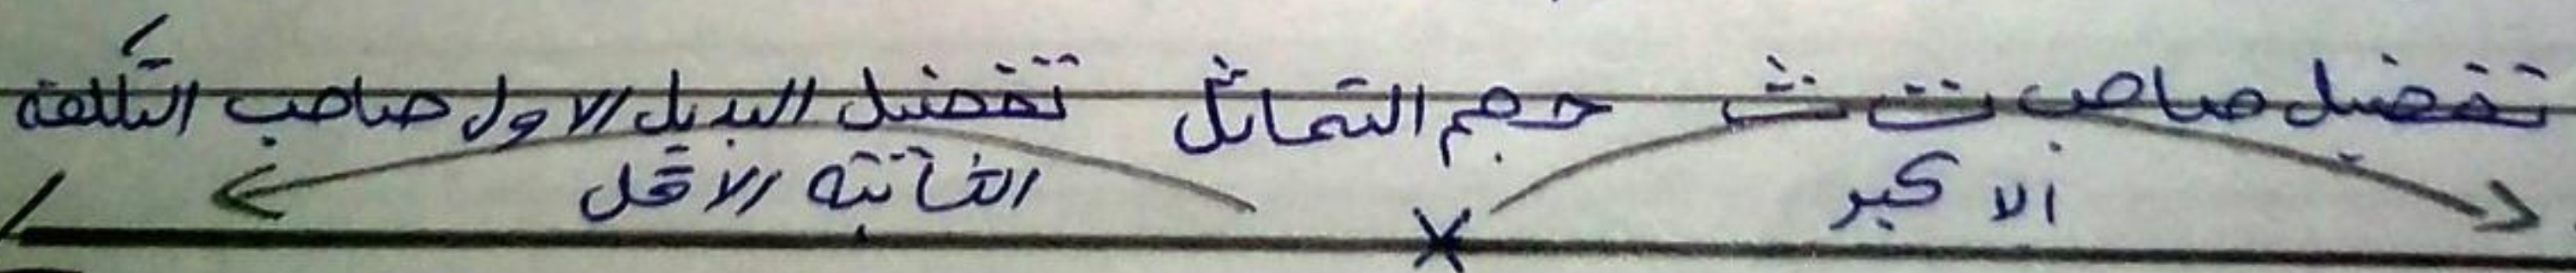 تفضيل صاحب ت ث حجم التماثل تفضيل البديل الاول صاحب التكلفة
الاكبر الثابتة الاقل